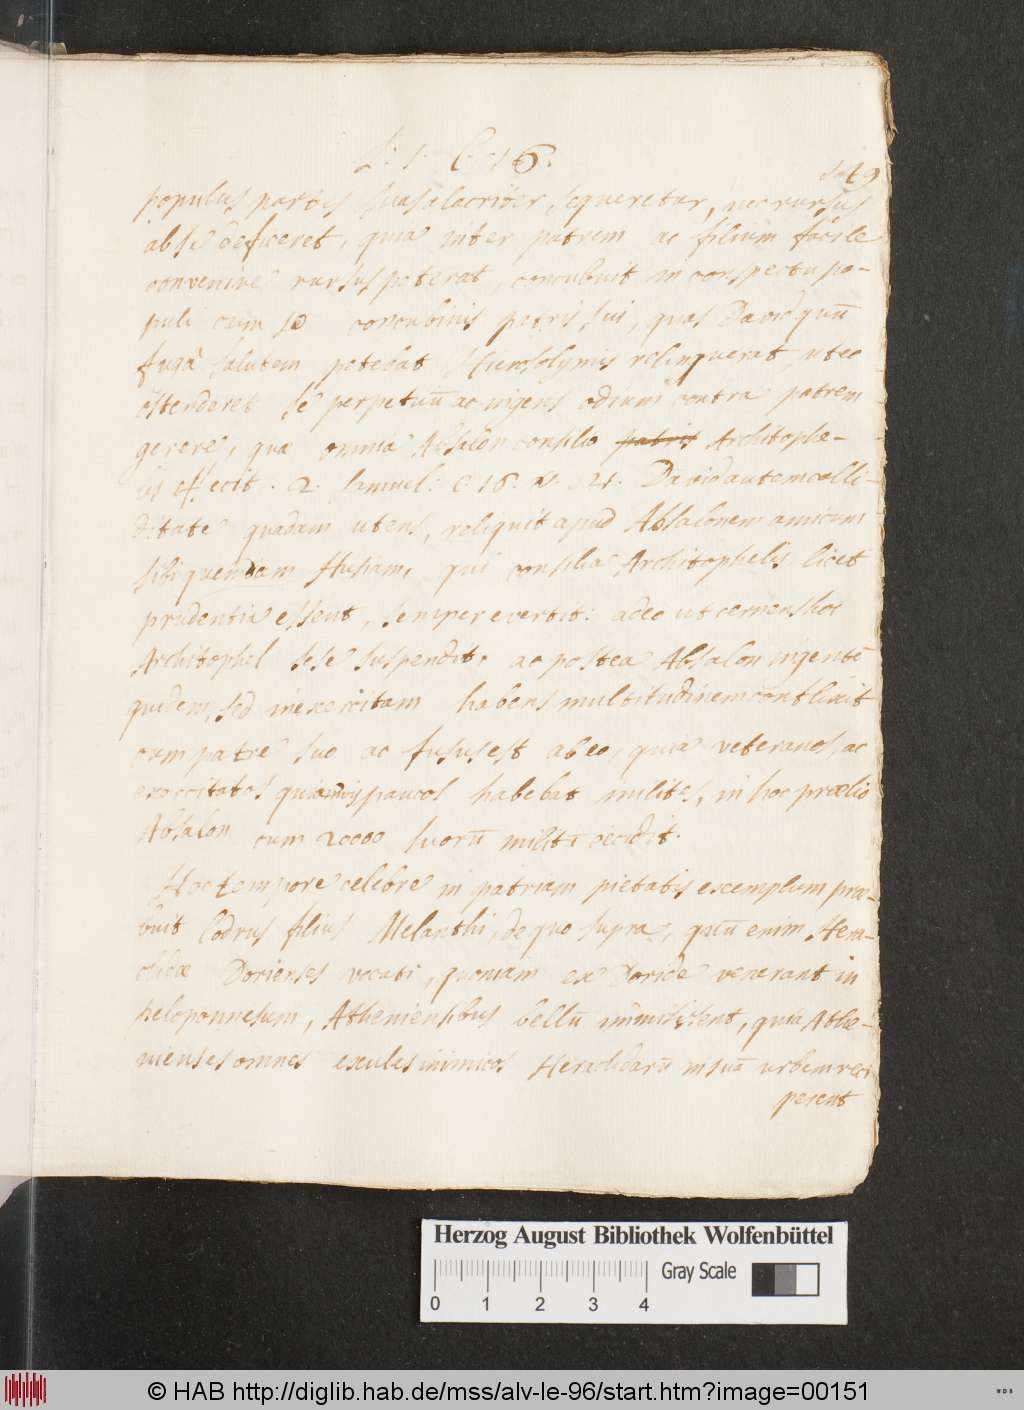 L. 1. C. 16.
populus partes suas alacriter sequeretur, nec rursus
ab se deficeret, quia inter patrem ac filium facile
convenire rursus poterat, concubuit in conspectu po-
puli cum 10 concubinis patris sui, quas David quū
fugâ salutem petebat Hierosolymis relinquerat, ut eo
ostenderet se perpetuū ac ingens odium contra patrem
gerere, quæ omnia Absalon consilio patris Architophe-
lis effecit. 2. Samuel: C. 16. v. 21. David autem calli-
ditate quadam utens, reliquit apud Absalonem amicum
sibi quendam Husiam, qui consilia Architophelis licet
prudentia essent, semper evertit: adeo ut cernens hoc
Architophel sese suspendit, ac postea Absalon ingentē
quidem, sed inexercitam habens multitudinem conflixit
cum patre suo ac fusus est ab eo, quia veteranos, ac
exercitatos quamvis paucos habebat milites, in hoc prælio
Absalon cum 20000 suorū militū cecidit.
Hoc tempore celebre in patriam pietatis exemplum præ-
buit Codrus filius Melanthi, de quo supra, quū enim Hera-
clidæ Dorienses vocati, quoniam ex Doride venerant in
peloponnesum, Atheniensibus bellū immisissent, quia Athe-
nienses omnes exules inimicos Heraclidarū in suā urbem reci
perent
Herzog August Bibliothek Wolfenbüttel
Gray Scale
0 1 2 3 4
© HAB http://diglib.hab.de/mss/alv-le-96/start.htm?image=00151